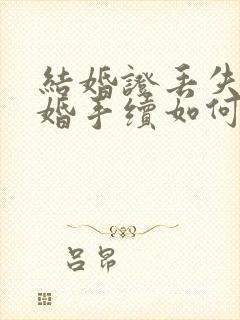 結婚證丟失
婚手續如何
呂昂